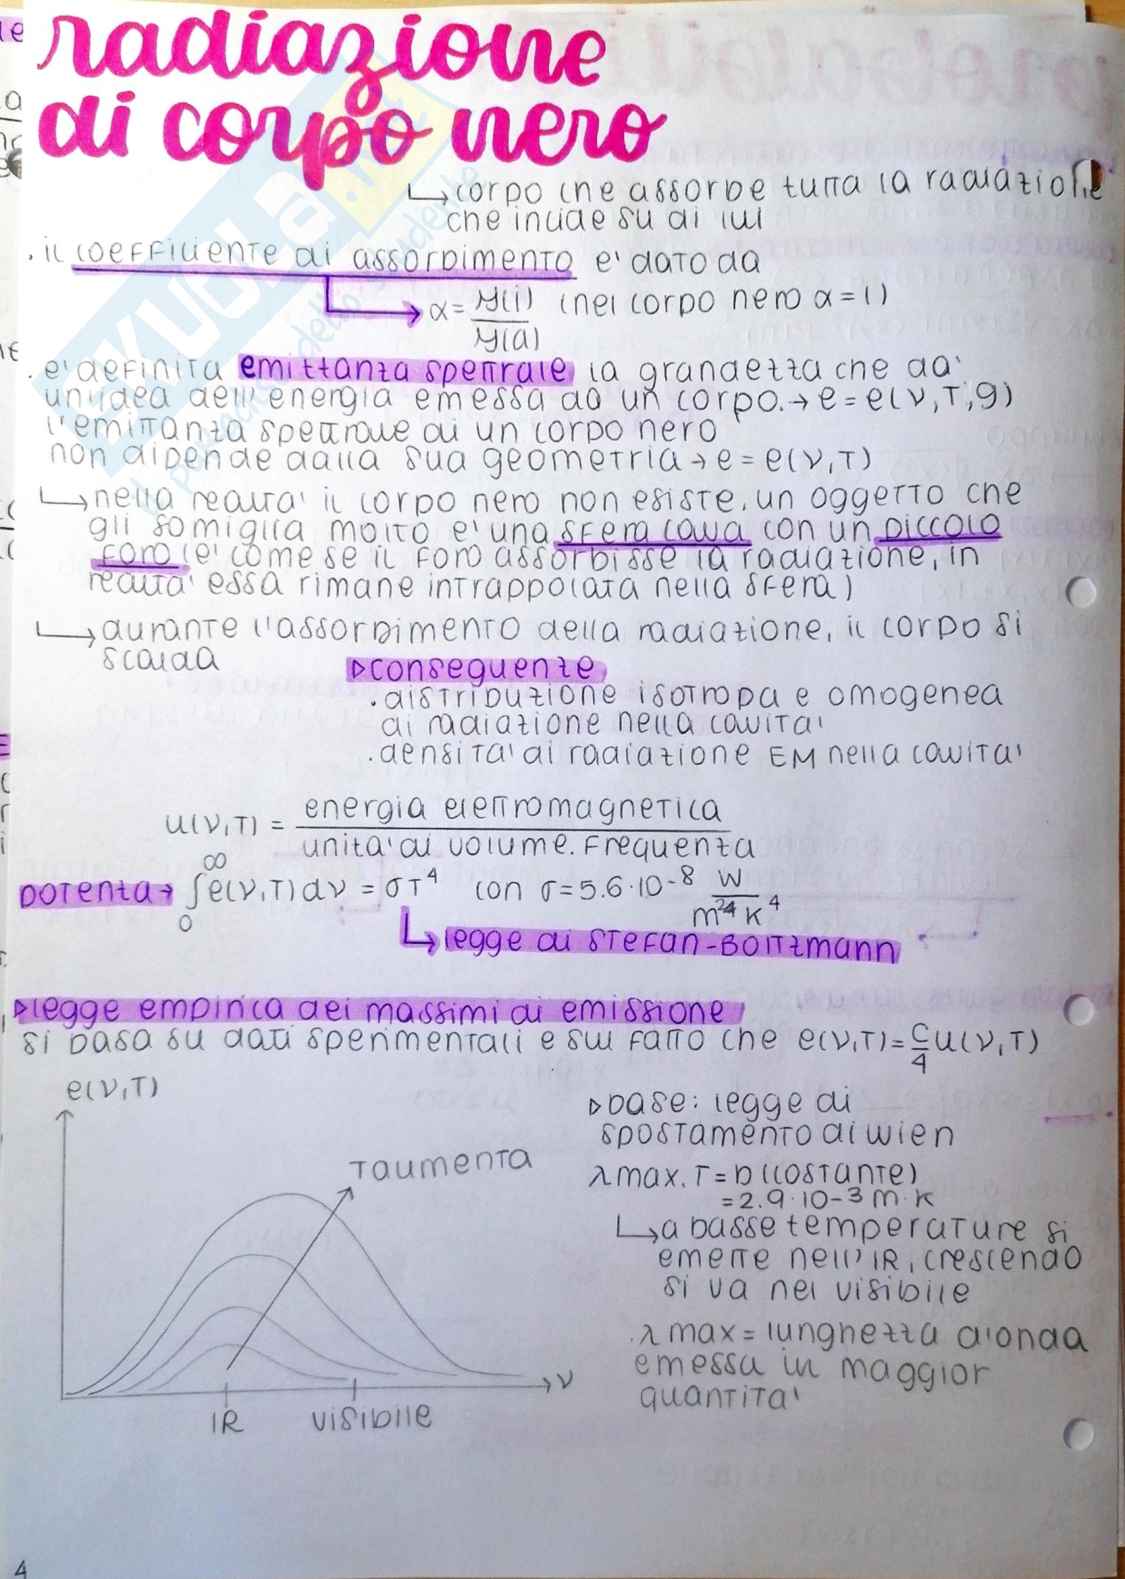 radiazione
di corpo nero
↳ corpo che assorbe tutta la radiazione
che incide su di lui
. il coefficiente di assorbimento e' dato da
α = y(i) / y(a) (nel corpo nero α = 1)
. e' definita emittanza spettrale la grandezza che da'
un'idea dell'energia emessa da un corpo. → e = e(ν,T,g)
l'emittanza spettrale di un corpo nero
non dipende dalla sua geometria → e = e(ν,T)
↳ nella realta' il corpo nero non esiste, un oggetto che
gli somiglia molto e' una sfera cava con un piccolo
foro (e' come se il foro assorbisse la radiazione, in
realta' essa rimane intrappolata nella sfera)
↳ durante l'assorbimento della radiazione, il corpo si
scalda
▷ conseguenze
. distribuzione isotropa e omogenea
di radiazione nella cavita'
. densita' di radiazione EM nella cavita'
u(ν,T) = energia elettromagnetica / unita' di volume. frequenza
potenza → ∫₀^∞ e(ν,T)dν = σT⁴ con σ = 5.6·10⁻⁸ W / m² K⁴
↳ legge di Stefan-Boltzmann
▷ legge empirica dei massimi di emissione
si basa su dati sperimentali e sul fatto che e(ν,T) = c/4 u(ν,T)
e(ν,T)
T aumenta
ν
IR
visibile
▷ base: legge di
spostamento di Wien
λmax. T = b (costante)
= 2.9·10-3 m·K
↳ a basse temperature si
emette nell'IR, crescendo
si va nel visibile
. λ max = lunghezza d'onda
emessa in maggior
quantita'
4
SKUOLA.net